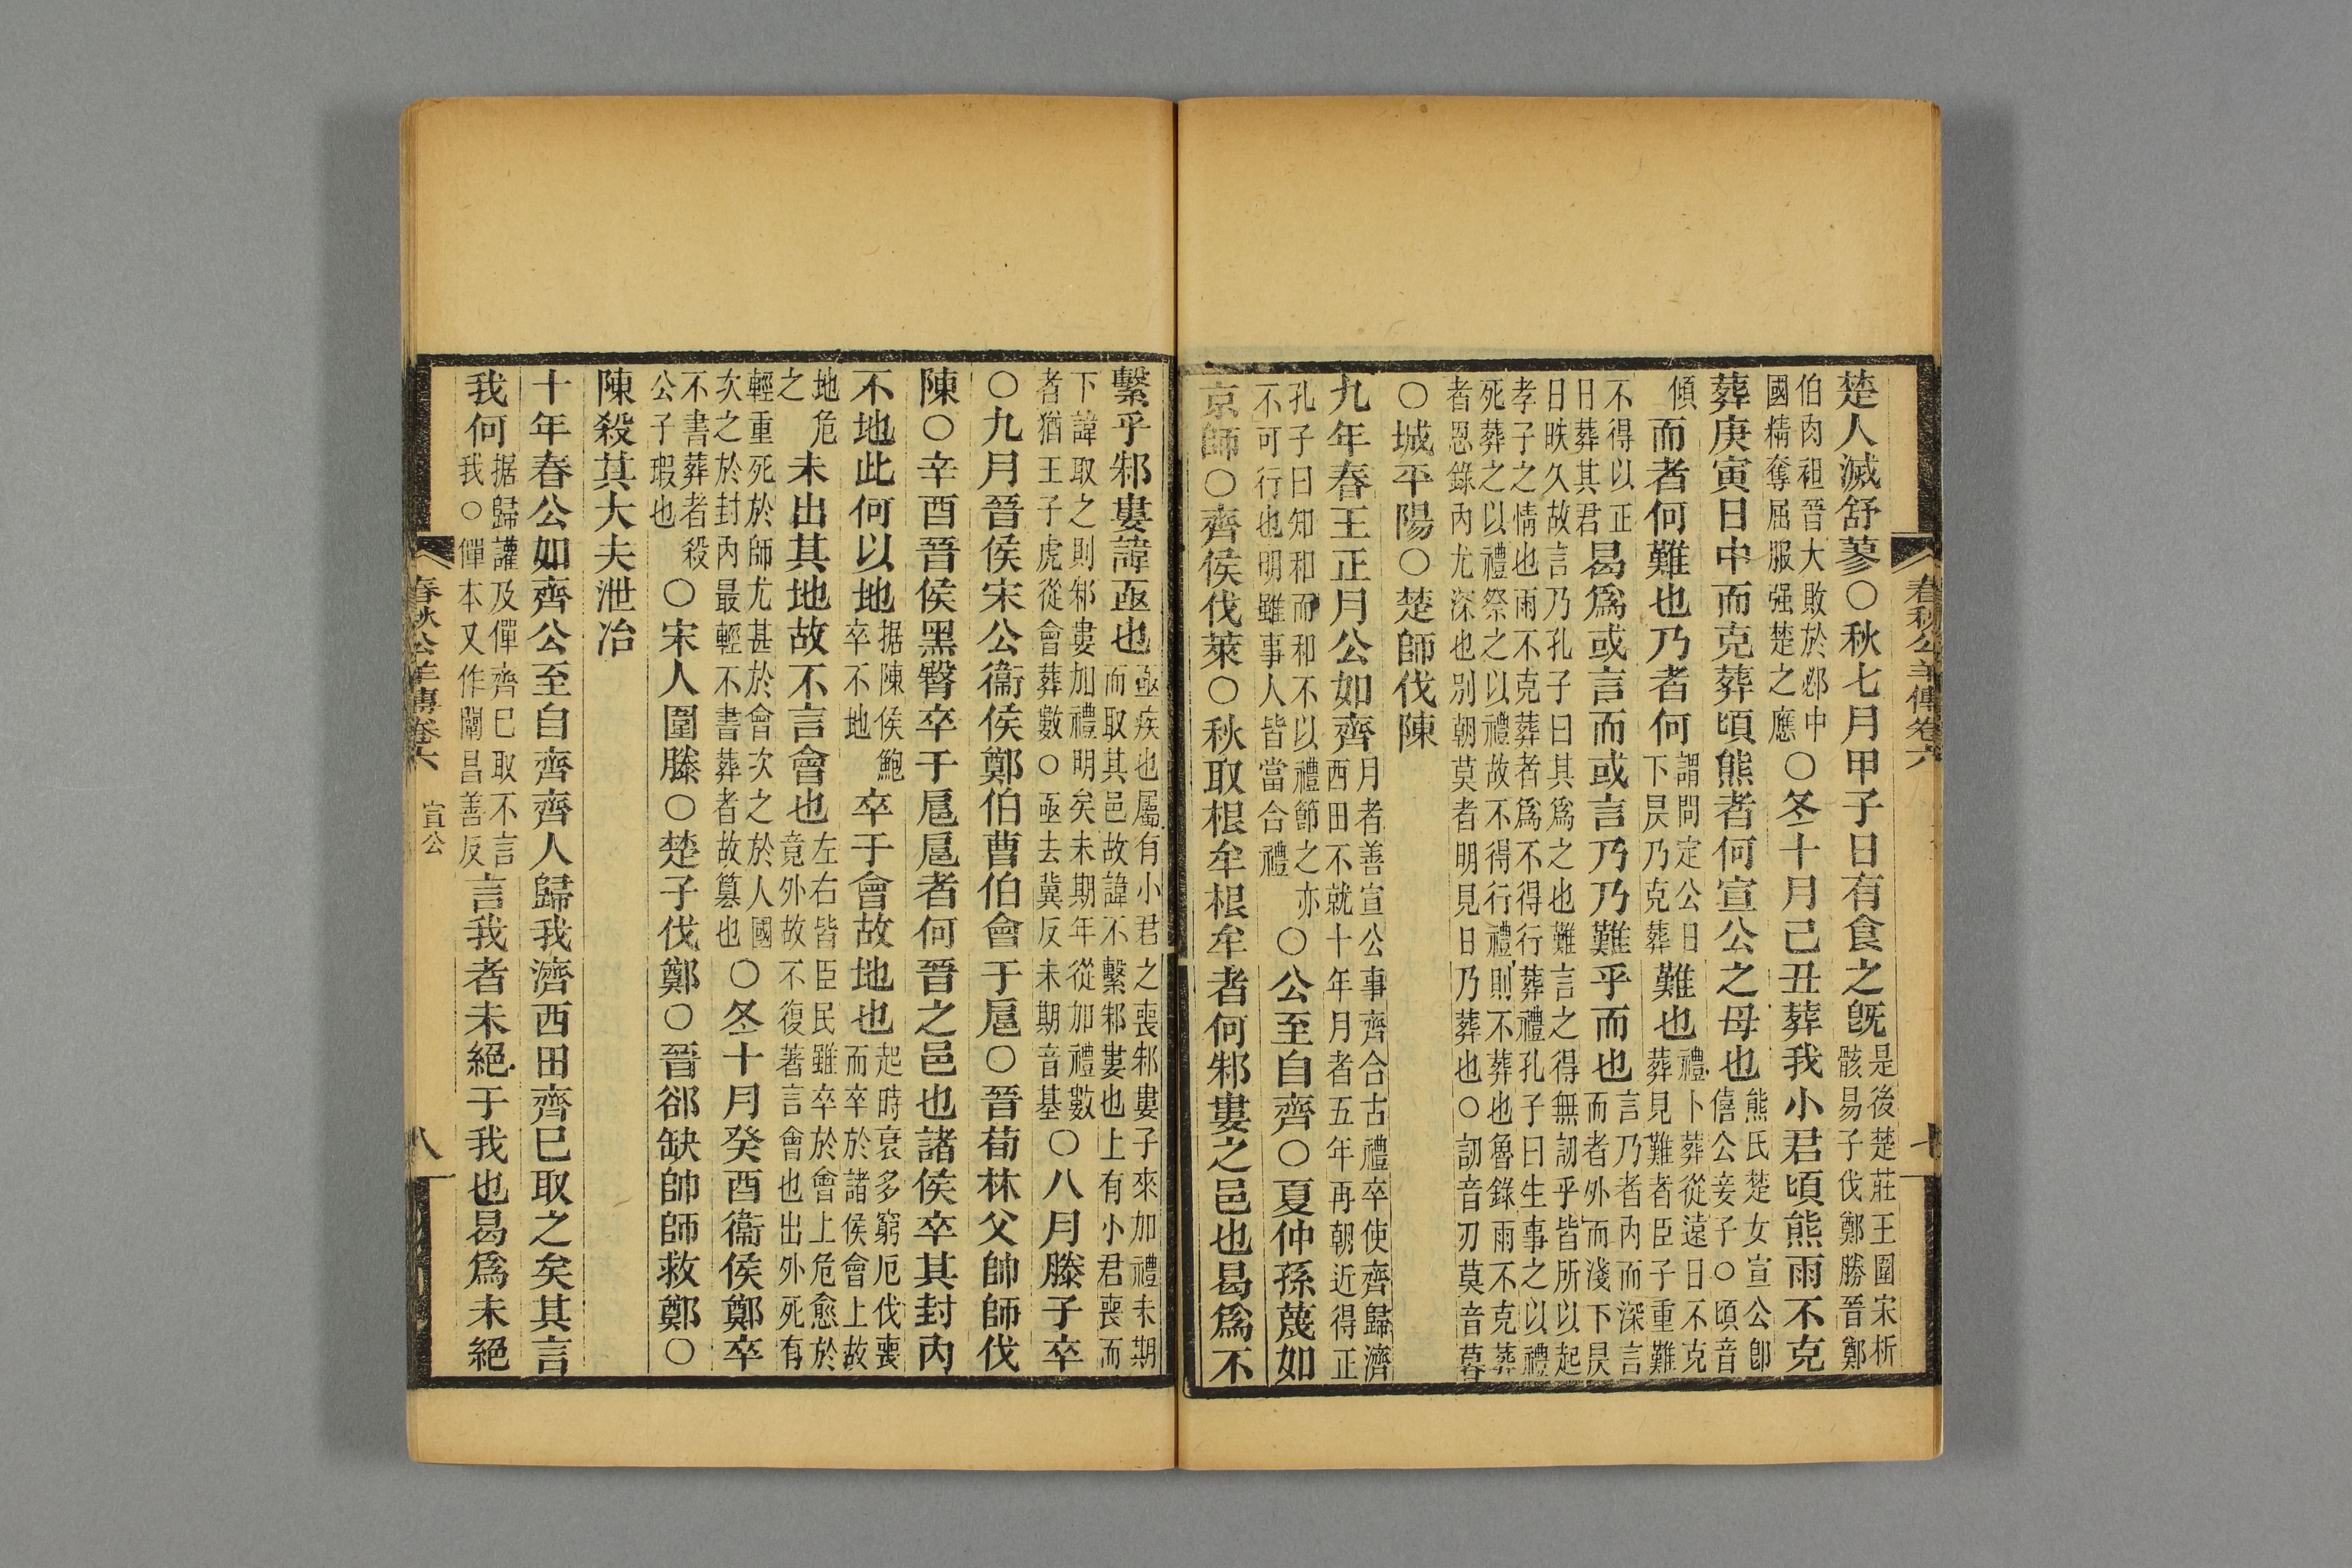 春秋公羊傳卷六 七
楚人滅舒蓼○秋七月甲子日有食之旣是後楚莊王圍宋析骸易子伐鄭勝晉鄭
伯肉袒晉大敗於邲中國精奪屈服强楚之應○冬十月己丑葬我小君頃熊雨不克
葬庚寅日中而克葬頃熊者何宣公之母也熊氏楚女宣公卽僖公妾子○頃音
傾而者何難也乃者何謂問定公日下昃乃克葬難也禮卜葬從遠日不克葬見難者臣子重難
不得以正日葬其君曷爲或言而或言乃乃難乎而也言乃者內而深言而者外而淺下昃
日昳久故言乃孔子曰其爲之也難言之得無訒乎皆所以起孝子之情也雨不克葬者爲不得行葬禮孔子曰生事之以禮
死葬之以禮祭之以禮故不得行禮則不葬也魯錄雨不克葬者恩錄內尤深也別朝莫者明見日乃葬也○訒音刃莫音暮
○城平陽○楚師伐陳
九年春王正月公如齊月者善宣公事齊合古禮卒使齊歸濟西田不就十年月者五年再朝近得正
孔子曰知和而和不以禮節之亦不可行也明雖事人皆當合禮○公至自齊○夏仲孫蔑如
京師○齊侯伐萊○秋取根牟根牟者何邾婁之邑也曷爲不
繫乎邾婁諱亟也亟疾也屬有小君之喪邾婁子來加禮未期而取其邑故諱不繫邾婁也上有小君喪而
下諱取之則邾婁加禮明矣未期年從加禮數者猶王子虎從會葬數○亟去冀反未期音基○八月滕子卒
○九月晉侯宋公衞侯鄭伯曹伯會于扈○晉荀林父帥師伐
陳○辛酉晉侯黑臀卒于扈扈者何晉之邑也諸侯卒其封內
不地此何以地据陳侯鮑卒不地卒于會故地也起時衰多窮厄伐喪而卒於諸侯會上故
地危之未出其地故不言會也左右皆臣民雖卒於會上危愈於竟外故不復著言會也出外死有
輕重死於師尤甚於會次之於人國次之於封內最輕不書葬者故簒也○冬十月癸酉衞侯鄭卒
不書葬者殺公子瑕也○宋人圍滕○楚子伐鄭○晉郤缺帥師救鄭○
陳殺其大夫泄冶
十年春公如齊公至自齊齊人歸我濟西田齊已取之矣其言
我何据歸讙及僤齊已取不言我○僤本又作闡昌善反言我者未絕于我也曷爲未絕
春秋公羊傳卷六 宣公 八